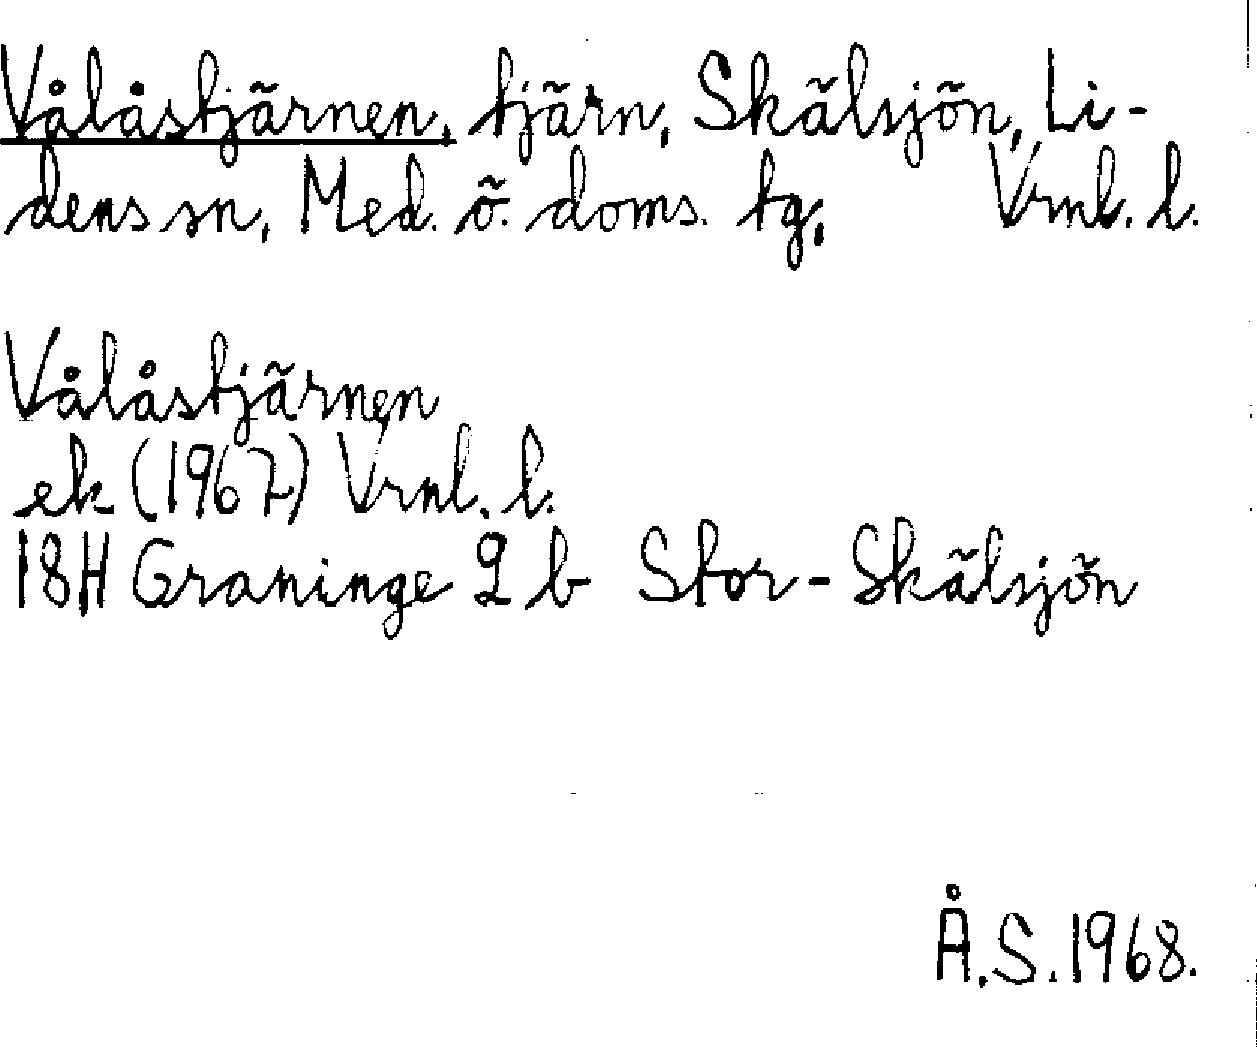 Vålåstjärnen, tjärn, Skälsjön, Li-
dens sn, Med. ö. doms. tg, Vrml. l.
Vålåstjärnen
ek (1967) Vrml. l.
18H Graninge 2 b Stor-Skälsjön
Å.S.1968.